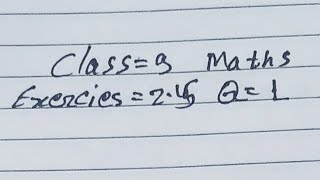 Class=9 Maths
Exercies=2.5 Q=1